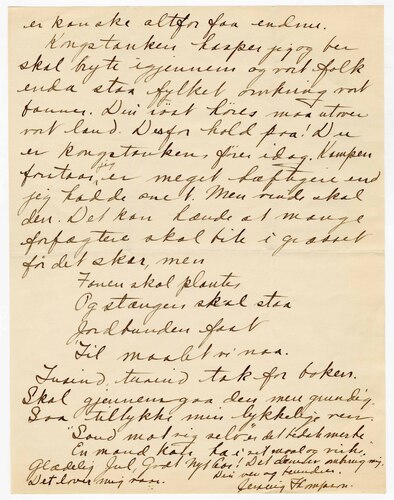 er kanske altfor faa endnu.
Kongstanken haaper jeg og ber
skal bryte igjennem og vort folk
enda staa fylket omkring vort
banner. Din røst høres maa utover
vort land. Derfor hold paa! Du
er kongstankens fører idag. Kampen
forstaar jeg er meget hæftigere end
jeg hadde ænet. Men vinde skal
den. Det kan hænde at mange
forfægtere skal bite i græsset
før det sker, men
Fanen skal plantes
Og stangen skal staa
Jordbunden fast
Til maalet vi naa.
Tusind, tusind tak for boken.
Skal gjennemgaa den men grundig.
Saa tillykke min lykkelige ven
"Sand mot sig selv" er det bedste merke
En mand kan ha i sit maal og virke.
Glædelig Jul, Godt Nyt Aar! Det dæmrer omkring mig.
Det lover mig vaar.
Din ven og frænde